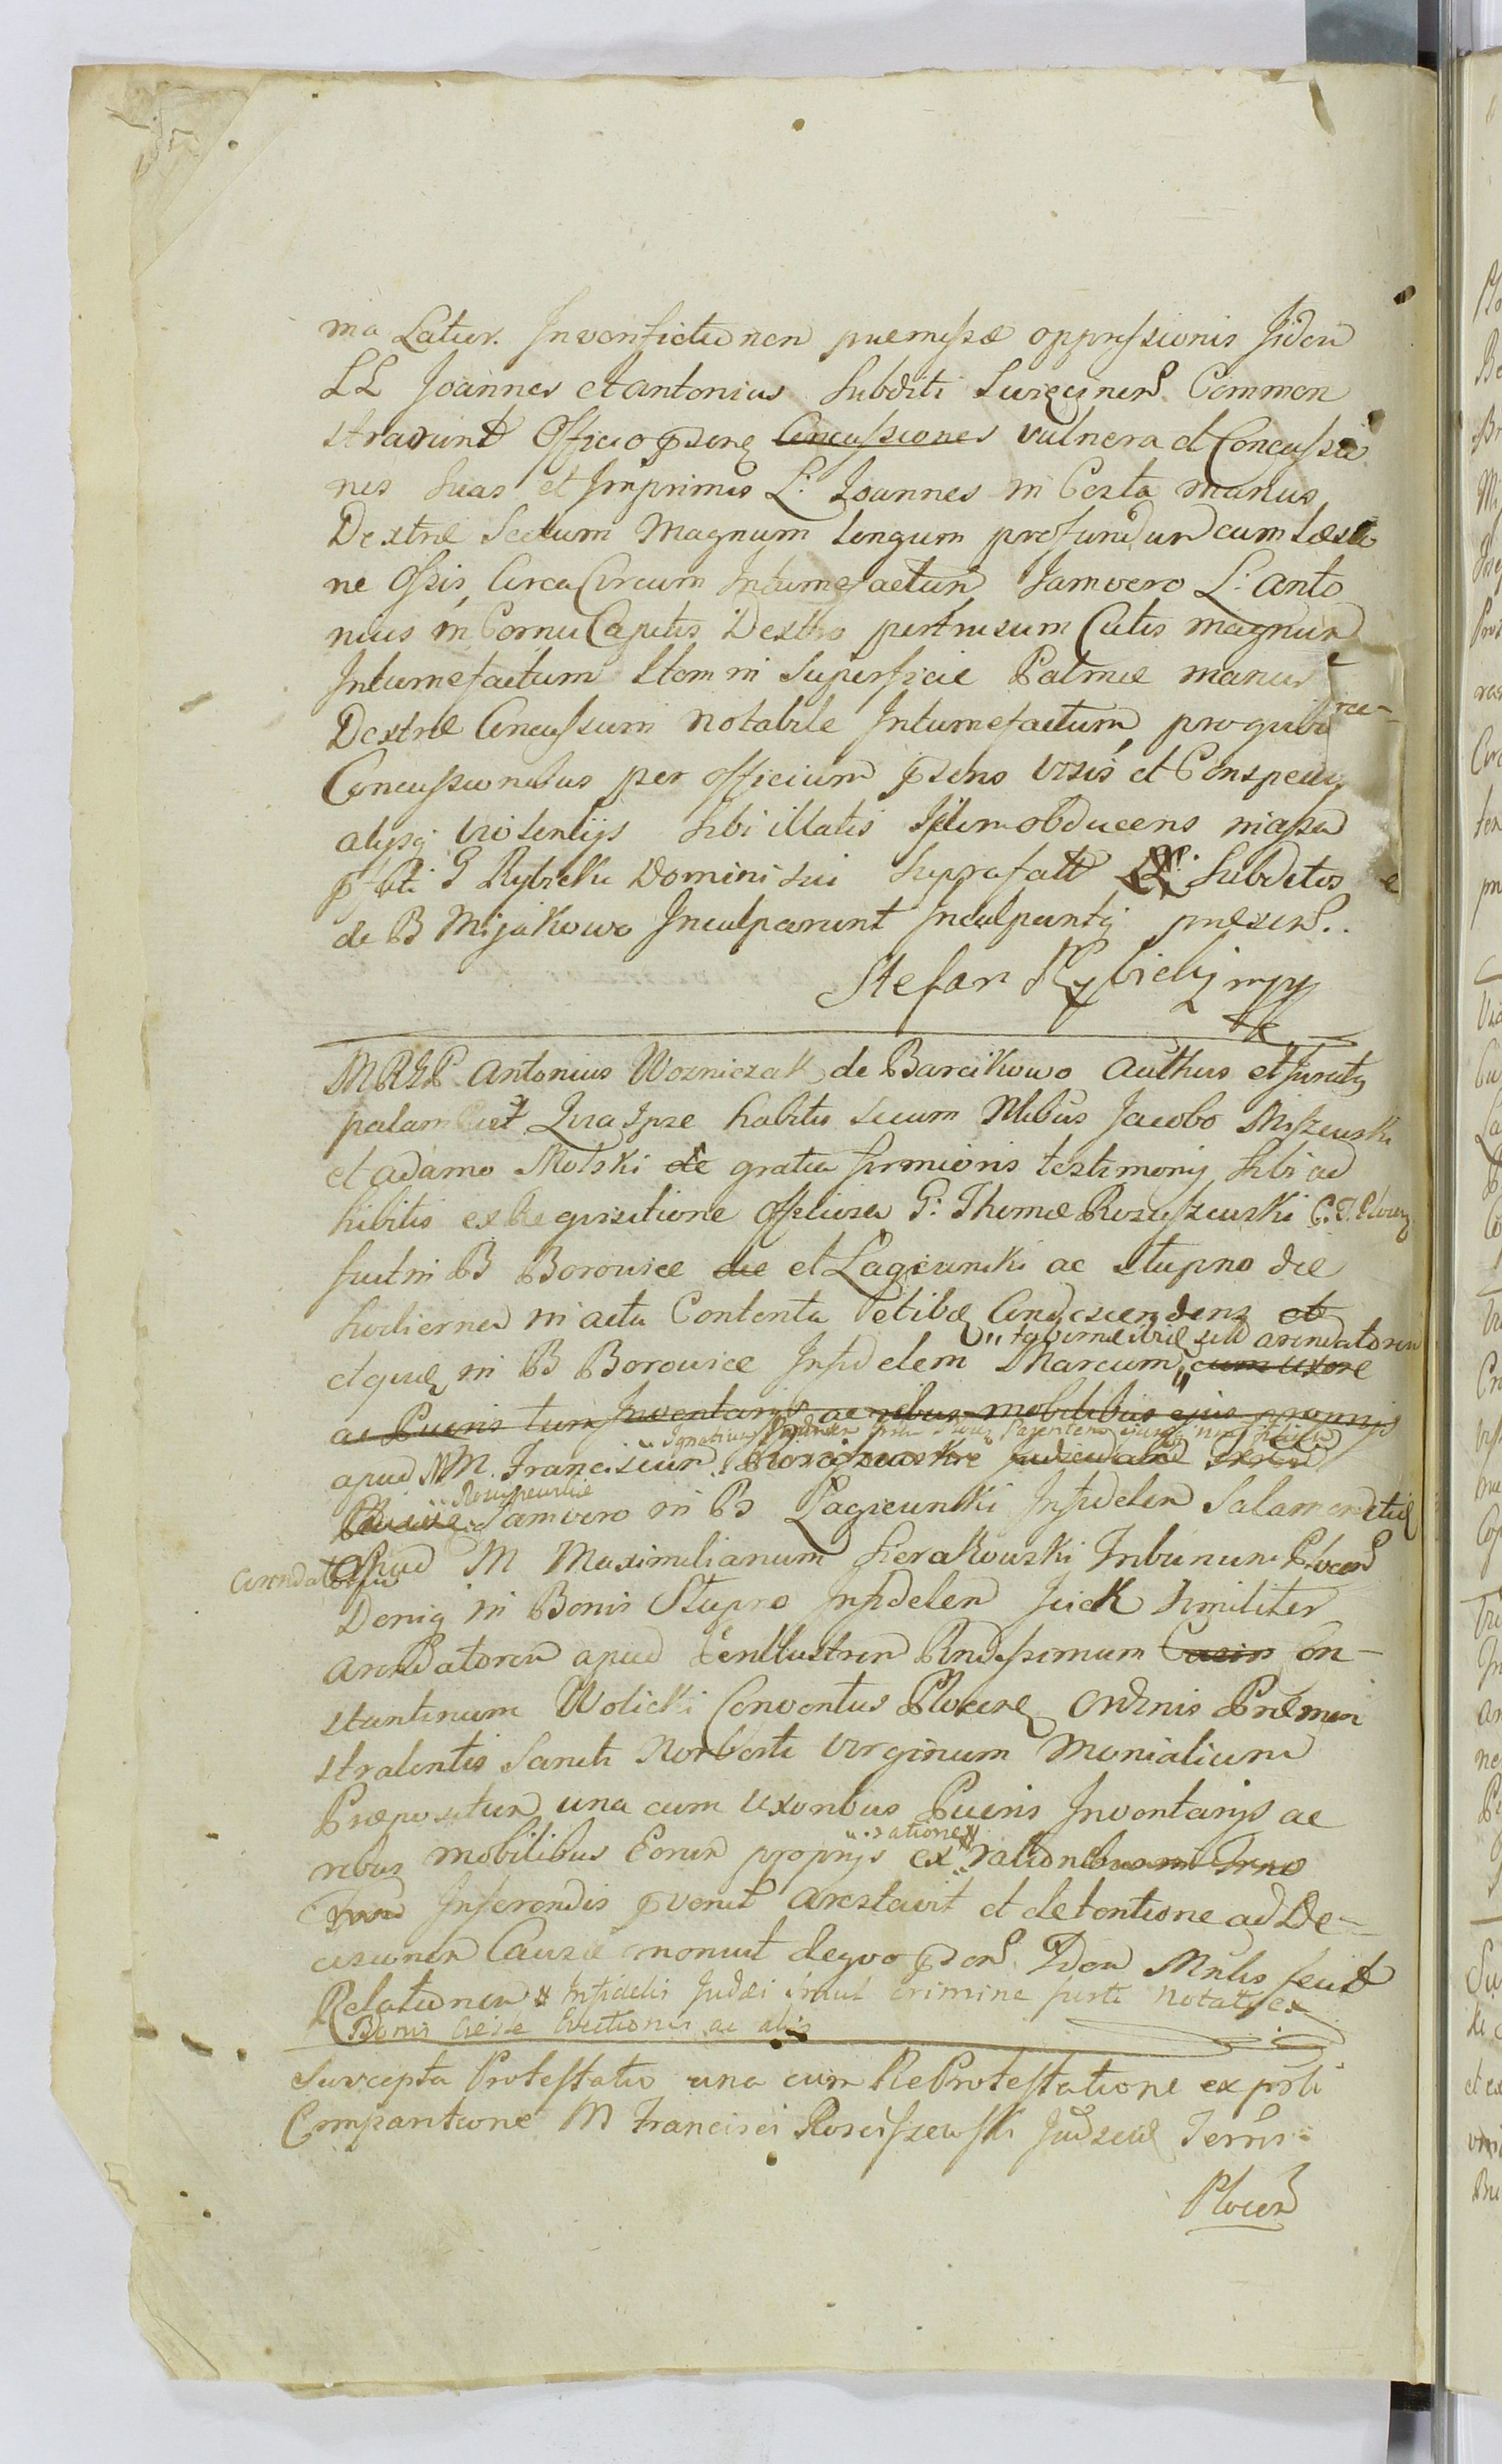 ma Latur. In verifictionem præmissæ oppressionis Jidem
LL Joannes et Antonius Subditi Common
strarunt Officio Concussiones vulnera et Concussio
nes suas et Imprimis L: Joannes in Costa manus
Dextræ Sectum Magnum longum profundum cum læsio
ne Ossis, Circa Circum Intumefactum Jamvero L: Anto
nius in Cornu Capitis Dextro pertrusum Cutis magnum
Intumefactum Item in Superficie Palmæ manus
Dextræ Concussum notabile Intumefactum, pro quibus
Concussionibus per Officium pdens visis et Conspectis
alysq violentijs sibi illatis obducens
G Rybicki Domini sui Suprafatt Subditos
de B Mijakowo Inculparunt Inculpantq præsen.
Stefan Rybicky mpp
MRGP Antonius Wozniczak de Barcikowo Authus et juratq
palam Quia Ipse habitis secum Nlibus Jacobo Miszewski
et Adamo Molski de gratia firmioris testimonij sibi ad
hibitis ex Requisitione Officiosa G: Thomæ Rosciszewski C. T. Plocen
fuit in B Borowice die et Lagiewniki ac Stupno die
hodierna in actu Contenta Petitæ Condescendens et
tabernatorem seu arendatorem
et quæ in B Borowice Infidelem Marcum cum uxore
ac Pueris tum Inventarijs ac rebus mobilibus ejus proprijs
apud M. Franciscum
Rosciszewskie
Jamvero in B Lagiewniki Infidelem Salamon
Arendatorem apud M Maximilianum Sierakowski Tribunum Plocen
Deniq in Bonis Stupno Infidelem Jcick similiter
arendatorem apud Perillustrem Rndissimum Con-
stantinum Wolicki Conventus Plocen Ordinis Præmon
stratentis Sancti Norberti Virginum Monialium
Præpositum una cum uxoribus Pueris Inventarijs ac
ratione
rebus mobilibus Eorum proprijs ex rationibus in Trno
Inferendis arestavit et detentione ad De-
cisionem Causæ monuit de quo Idem Mnlis fecit
Relationem Infidelis Judæi crimine furti notatq ex
Bonis
Suscepta Protestatio una cum ReProtestatione ex psli
Comparitione M Francisci Rosciszewski Judicis Terris
Plocen